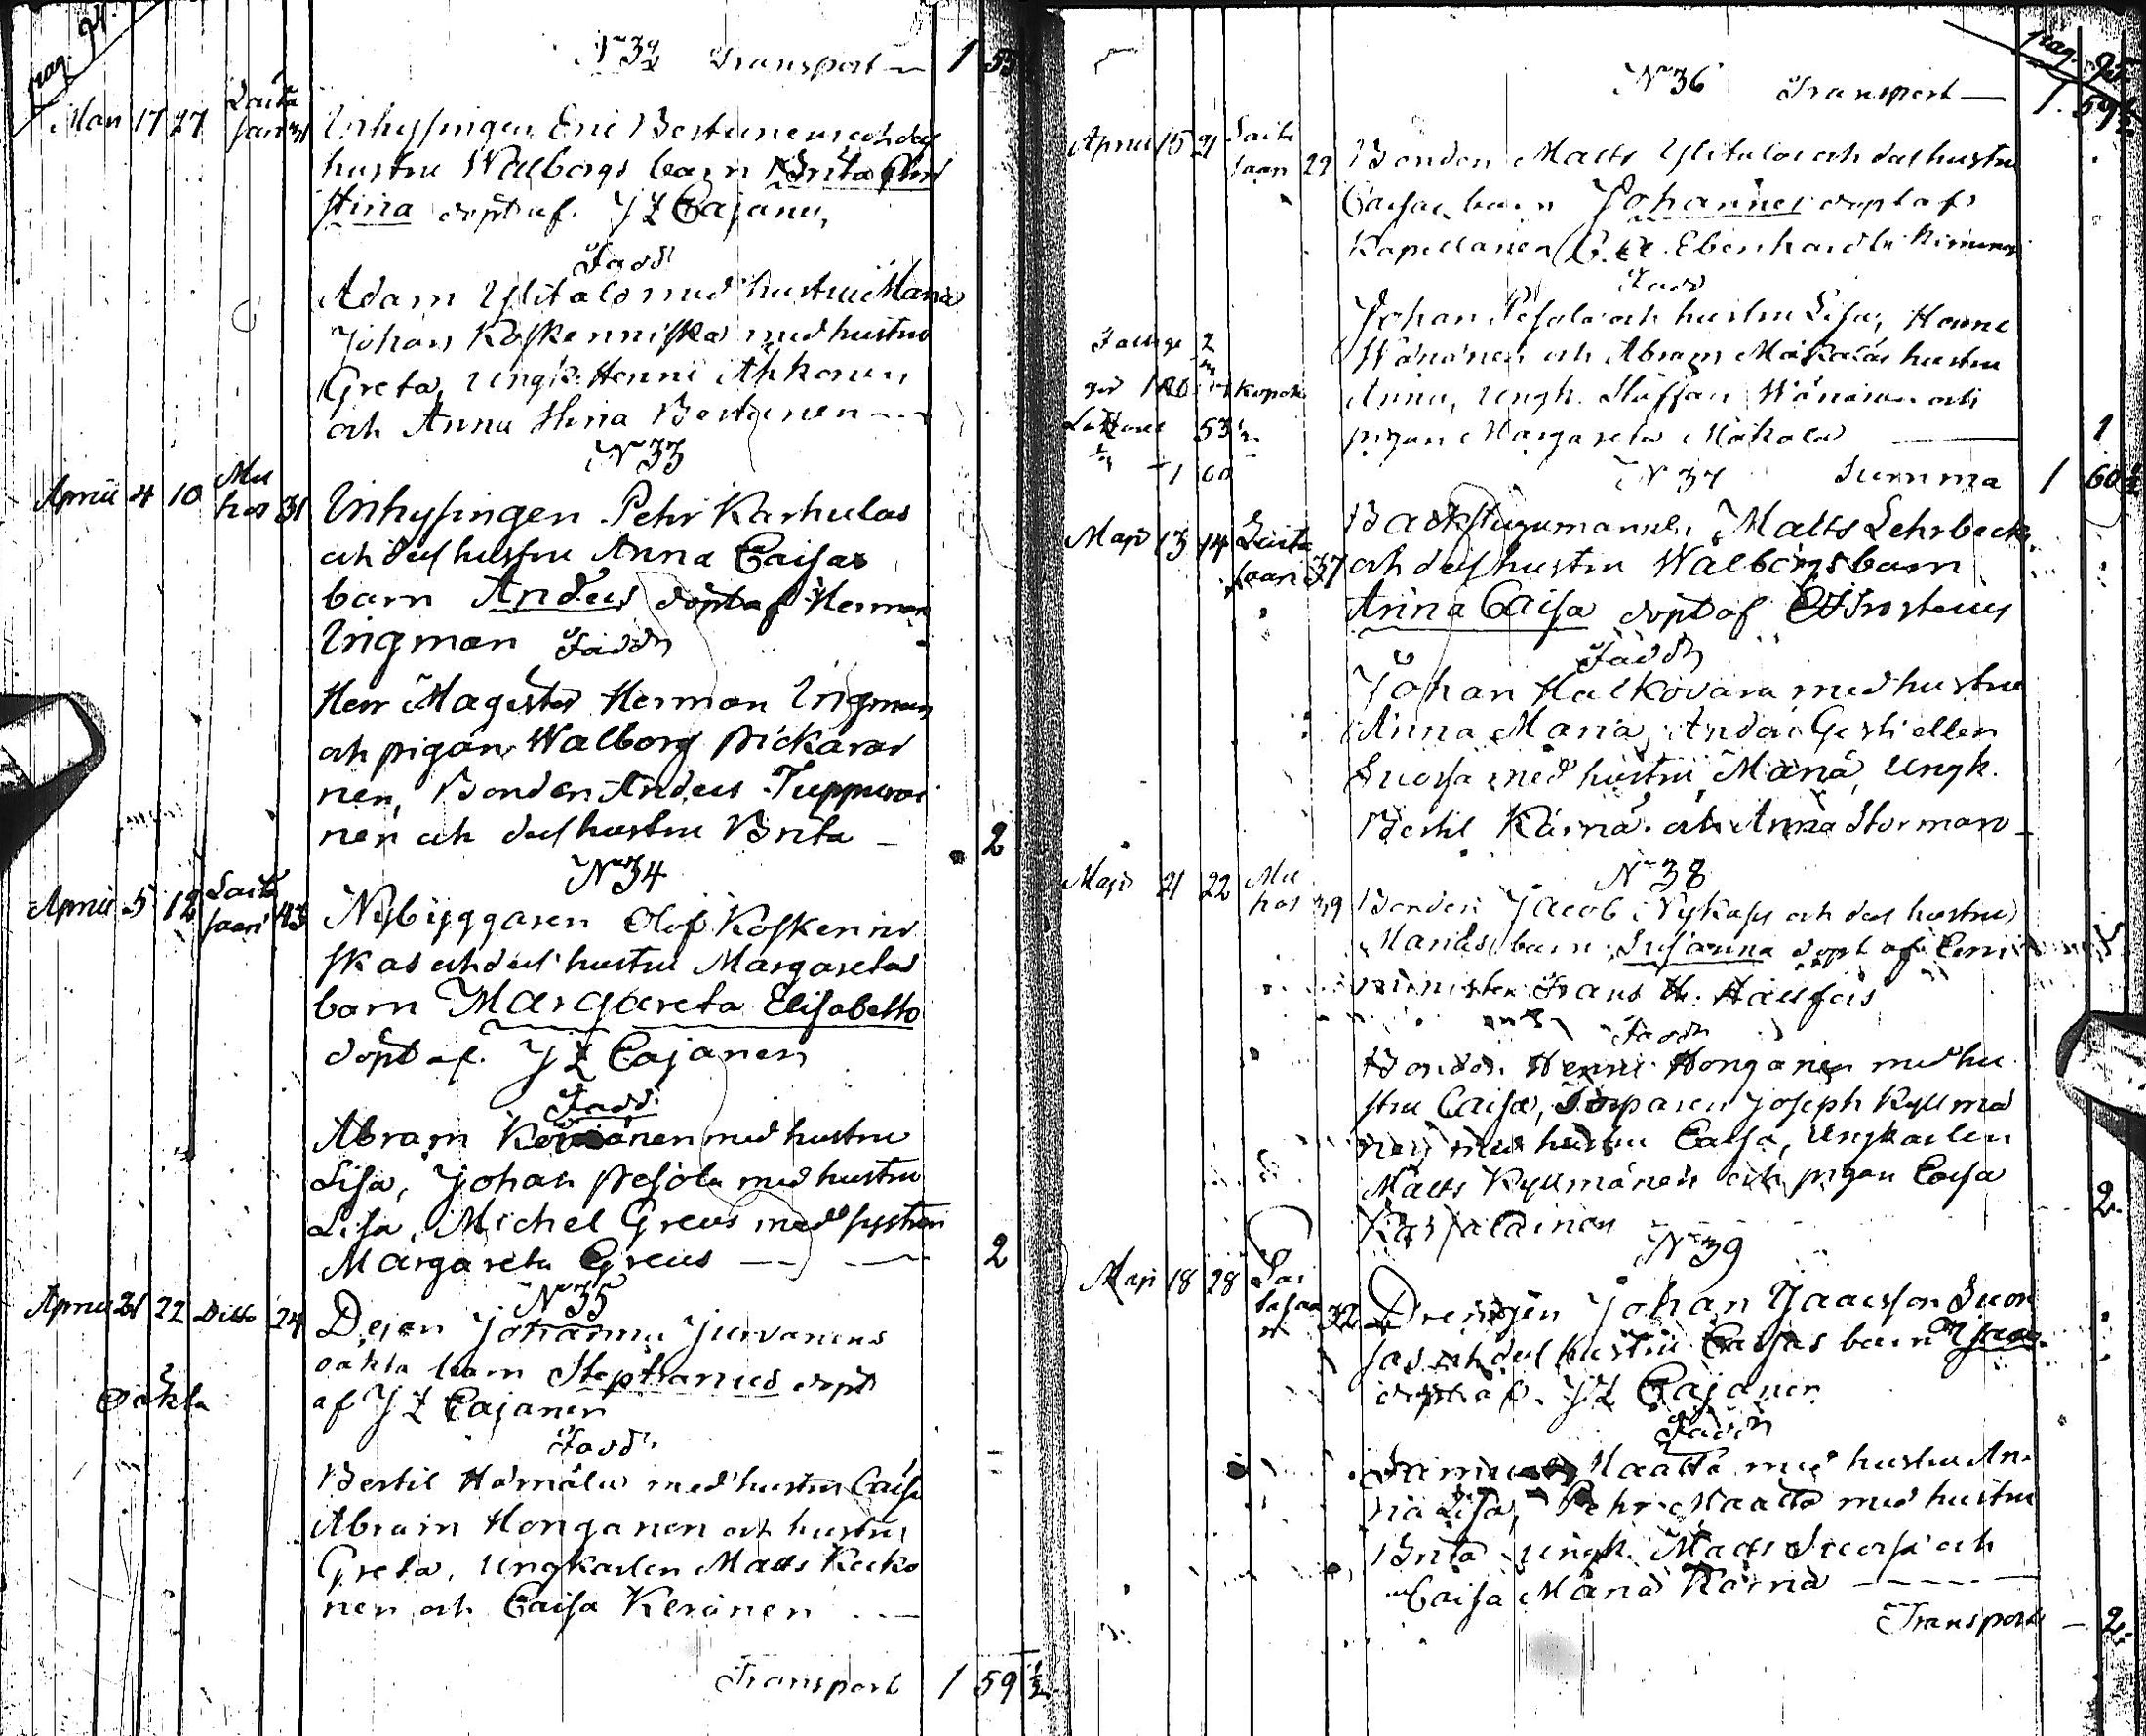 pag.
N 32 Transport — 1 55
Mars 17 27 Laita saari
Inhysingen Eric Bertunens och dess
hustru Walborgs barn Brita Chri
stina döpt af. J Z Cajanus,
Fadd
Adam Ylitalo med hustru Maria
Johan Koskenniska med hustru
Greta, Ungk. Henric Ahkonen
och Anna Stina Bertunen - - -
N 33
April 4 10 Mu hos 31
Inhysingen Pehr Karhulas
och dess hustru Anna Caisas
barn Anders döpt af Herman
Ingman Fadd
Herr Magister Herman Ingman
och pigan Walborg Pickarai
nen, Bonden Anders Tuppurai
nen och dess hustru Brita — 2
N 34
April 5 12 Laita saari 43
Nybyggaren Olof Koskenni
skas och dess hustru Margaretas
barn Margareta Elisabeth
döpt af. J Z Cajanen
Fadd.
Abram med hustru
Lisa, Johan Pesola med hustru
Lisa, Michel Greus med systren
Margareta Greus — — 2
N 35
April 21 22 Ditto 24
Dejan Johanna Jurvanens
oäkta barn Stephanus döpt
af J Z Cajanen
Oäkta
Fadd.
Bertil Hämälä med hustru Caisa
Abram Honganen och hustru
Greta, Ungkarlen Matts Keiko
nen och Caisa Keränen . . —
Transport 1 59 ½
pag.
N 36 Transport — 1. 59 ½
April 15 21 Laita saari 29
Bonden Matts Ylitalos och dess hustru
Caisas barn Johannes döpt af
Kapellanen C. A. Eberhardt i Kiminge
Fadd
Johan Pesola och hustru Lisa, Henric
Wänänen och Abram Mäkeläs hustru
Anna, Ungk. Staffan Wänänen och
pigan Margareta Mäkelä — 1
53 ½
1 60
N 37 Summa 1 60 ½
Maji 13 14 Laita saari 37
Backstugumannen Matts Lehrbecks
och dess hustru Walborgs barn
Anna Caisa döpt af
Fadd
Johan Halkovara med hustru
Anna Maria, Anders Gerti eller
Suorsa med hustru Maria, Ungk.
Bertil Kärnä och Anna Storman —
N 38
Maji 21 22 Mu hos 39
Bonden Jacob Nykäs och dess hustru
Marias barn Susanna döpt af Com
minister Frans H. Hällfors
Fadd
Bonden Henric Honganen med hu
stru Caisa, Torparen Joseph Kyllmä
nen med hustru Caisa, Ungkarlen
Matts Kyllmänen och pigan Caisa
Karjalainen 2.
N 39
Maji 18 28 Lai tasaa ri 32
Drengen Johan Isacsson Suor
sas och dess hustru Caisas barn Isac
döpt af. J Z Cajanen
Fadd
Maatta med hustru An
na Lisa, Pehr Maatta med hustru
Brita Ungk. Matts Suorsa och
Caisa Maria Kärnä - - - - —
Transport — 2.